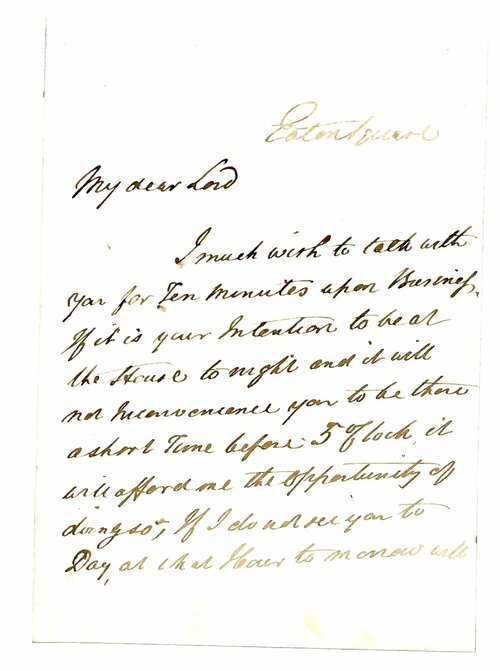 Eaton Square
My dear Lord
I much wish to talk with
you for Ten Minutes upon Business.
If it is your Intention to be at
the House to night and it will
not Inconvenience you to be there
a short Time before 5 O'Clock, it
will afford me the Opportunity of
doing so, If I do not see you to
Day, at what Hour to morrow will